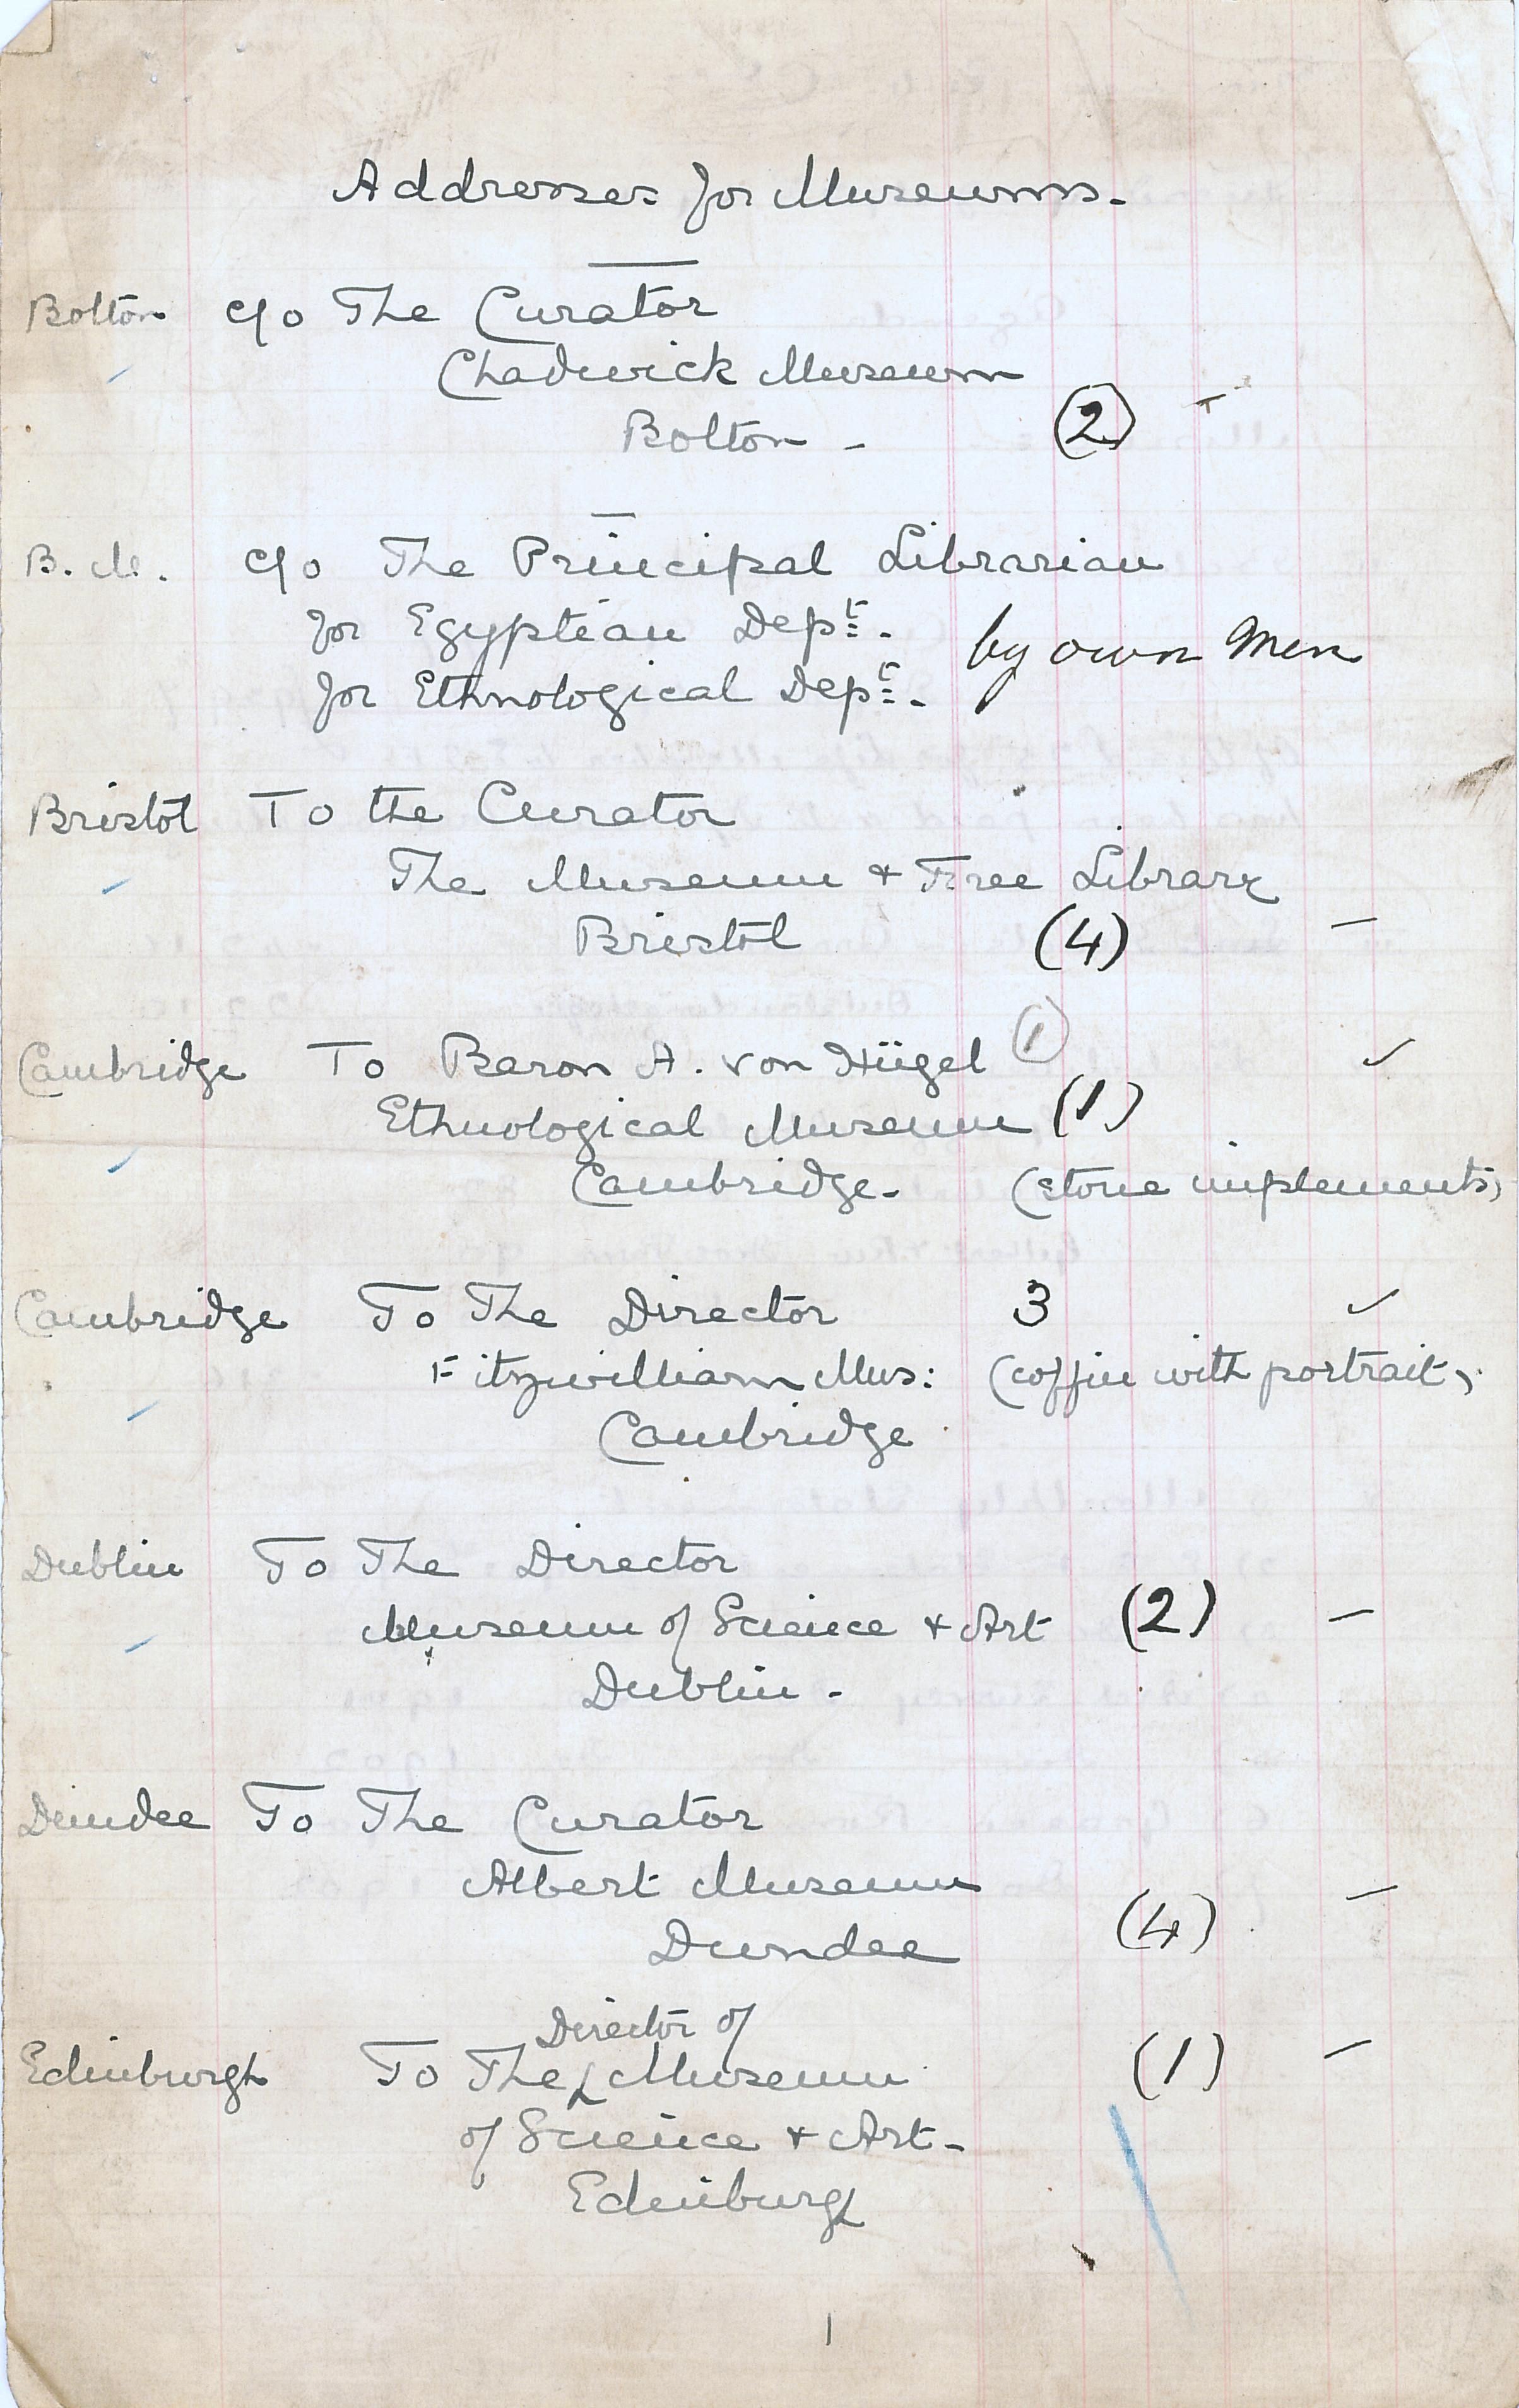 Addresses for Museums.
Bolton c/o The Curator
Chadwick Museum
Bolton - (2)
B. M. c/o The Principal Librarian
for Egyptian Dept.
for Ethnological Dept. by own Men
Bristol To the Curator
The Museum & Free Library
Bristol (4) -
Cambridge To Baron A. von Hügel (1) ✓
Ethnological Museum (1)
Cambridge. (stone implements)
Cambridge To The Director 3 ✓
Fitzwilliam Mus: (coffin with portrait)
Cambridge
Dublin To The Director
Museum of Science & Art (2) -
Dublin -
Dundee To The Curator
Albert Museum
Dundee (4) -
Director of
Edinburgh To The Museum (1) -
of Science & Art -
Edinburgh
1